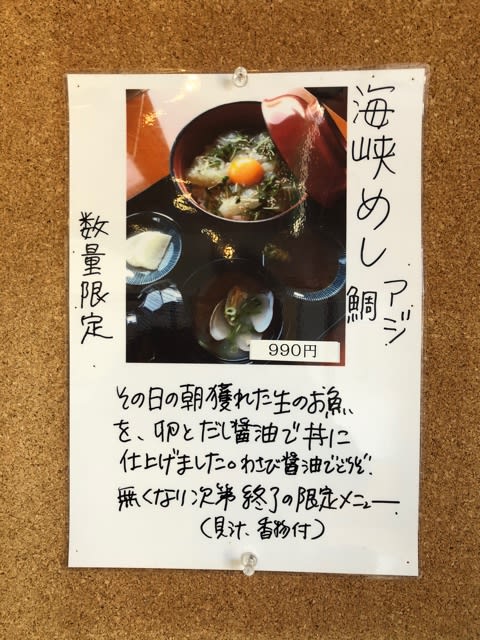 海峡めし
アジ
鯛
数量限定
990円
その日の朝獲れた生のお魚
を、卵とだし醤油で丼に
仕上げました。わさび醤油でどうぞ。
無くなり次第終了の限定メニュー。
(貝汁、香物付)